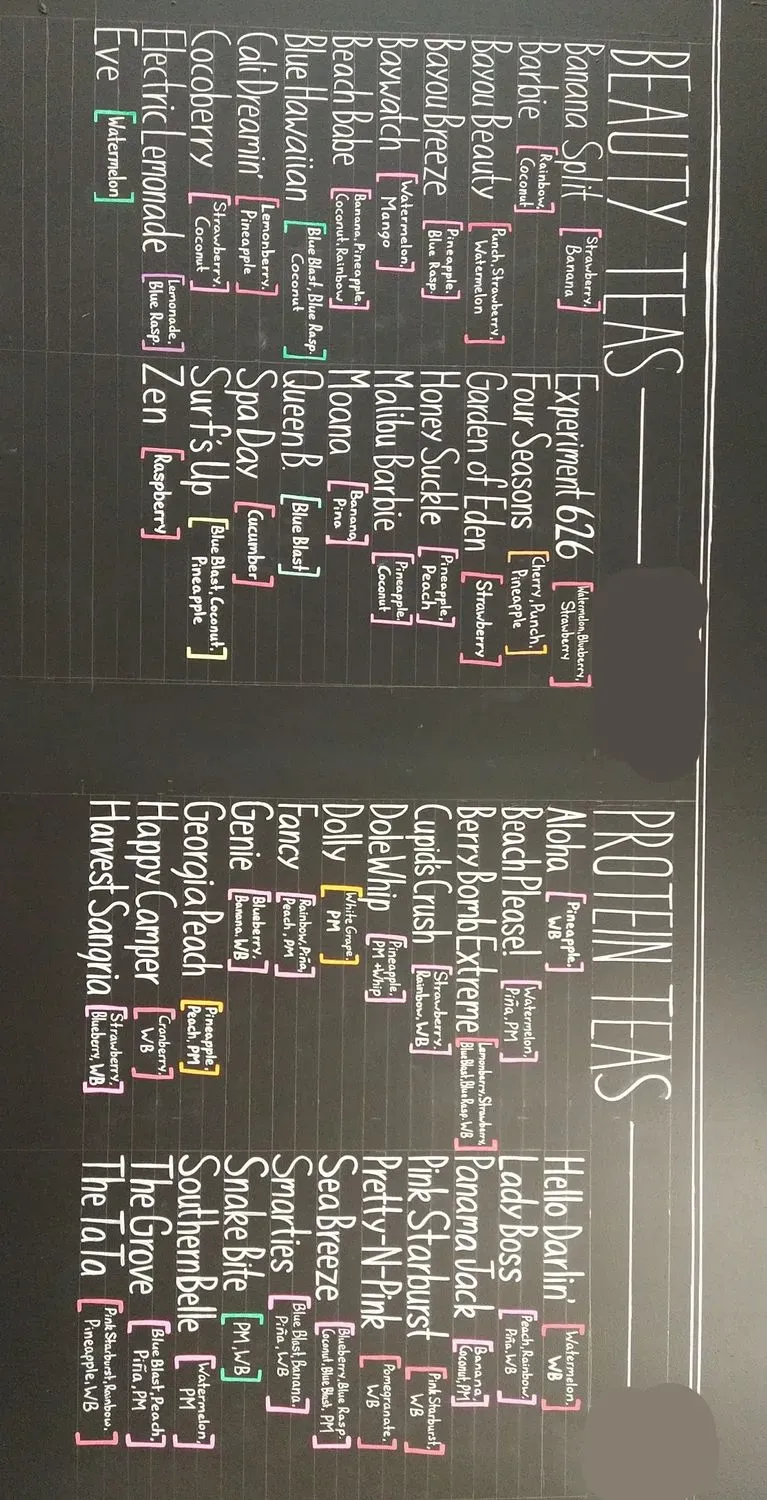 BEAUTY TEAS
Banana Split [Strawberry, Banana]
Barbie [Rainbow, Coconut]
Bayou Beauty [Punch, Strawberry, Watermelon]
Bayou Breeze [Pineapple, Blue Rasp.]
Baywatch [Watermelon, Mango]
Beach Babe [Banana, Pineapple, Coconut, Rainbow]
Blue Hawaiian [Blue Blast, Blue Rasp. Coconut]
Cali Dreamin' [Lemonberry, Pineapple]
Cocoberry [Strawberry, Coconut]
Electric Lemonade [Lemonade, Blue Rasp.]
Eve [Watermelon]
Experiment 626 [Watermelon, Blueberry, Strawberry]
Four Seasons [Cherry, Punch, Pineapple]
Garden of Eden [Strawberry]
Honey Suckle [Pineapple, Peach]
Malibu Barbie [Pineapple, Coconut]
Moana [Banana, Pina]
Queen B. [Blue Blast]
Spa Day [Cucumber]
Surf's Up [Blue Blast, Coconut, Pineapple]
Zen [Raspberry]
PROTEIN TEAS
Aloha [Pineapple, WB]
Beach Please! [Watermelon, Piña, PM]
Berry Bomb Extreme [Lemonberry, Strawberry, Blue Blast, Blue Rasp. WB]
Cupids Crush [Strawberry, Rainbow, WB]
Dole Whip [Pineapple, PM + Whip]
Dolly [White Grape, PM]
Fancy [Rainbow, Piña, Peach, PM]
Genie [Blueberry, Banana, WB]
Georgia Peach [Pineapple, Peach, PM]
Happy Camper [Cranberry, WB]
Harvest Sangria [Strawberry, Blueberry, WB]
Hello Darlin' [Watermelon, WB]
Lady Boss [Peach, Rainbow, Piña, WB]
Panama Jack [Banana, Coconut, PM]
Pink Starburst [Pink Starburst, WB]
Pretty-N-Pink [Pomegranate, WB]
Sea Breeze [Blueberry, Blue Rasp. Coconut, Blue Blast, PM]
Smarties [Blue Blast, Banana, Piña, WB]
Snake Bite [PM, WB]
Southern Belle [Watermelon, PM]
The Grove [Blue Blast, Peach, Piña, PM]
The TaTa [Pink Starburst, Rainbow, Pineapple, WB]